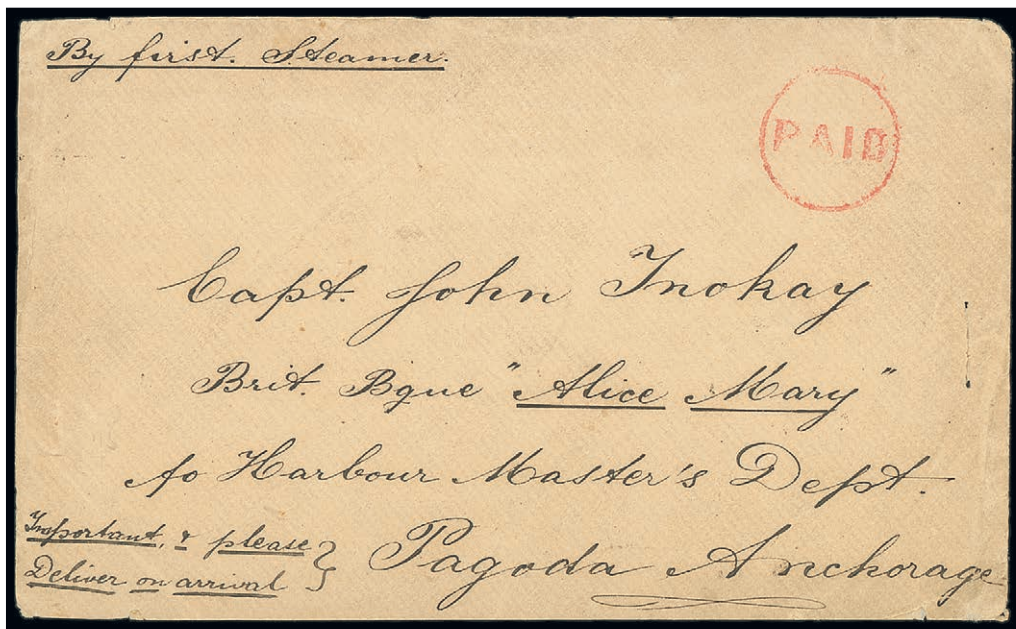 By first. Steamer.
PAID
Capt. John Inokay
Brit. Bque "Alice Mary"
c/o Harbour Master's Dept.
Important, & please
Deliver on arrival }
Pagoda Anchorage